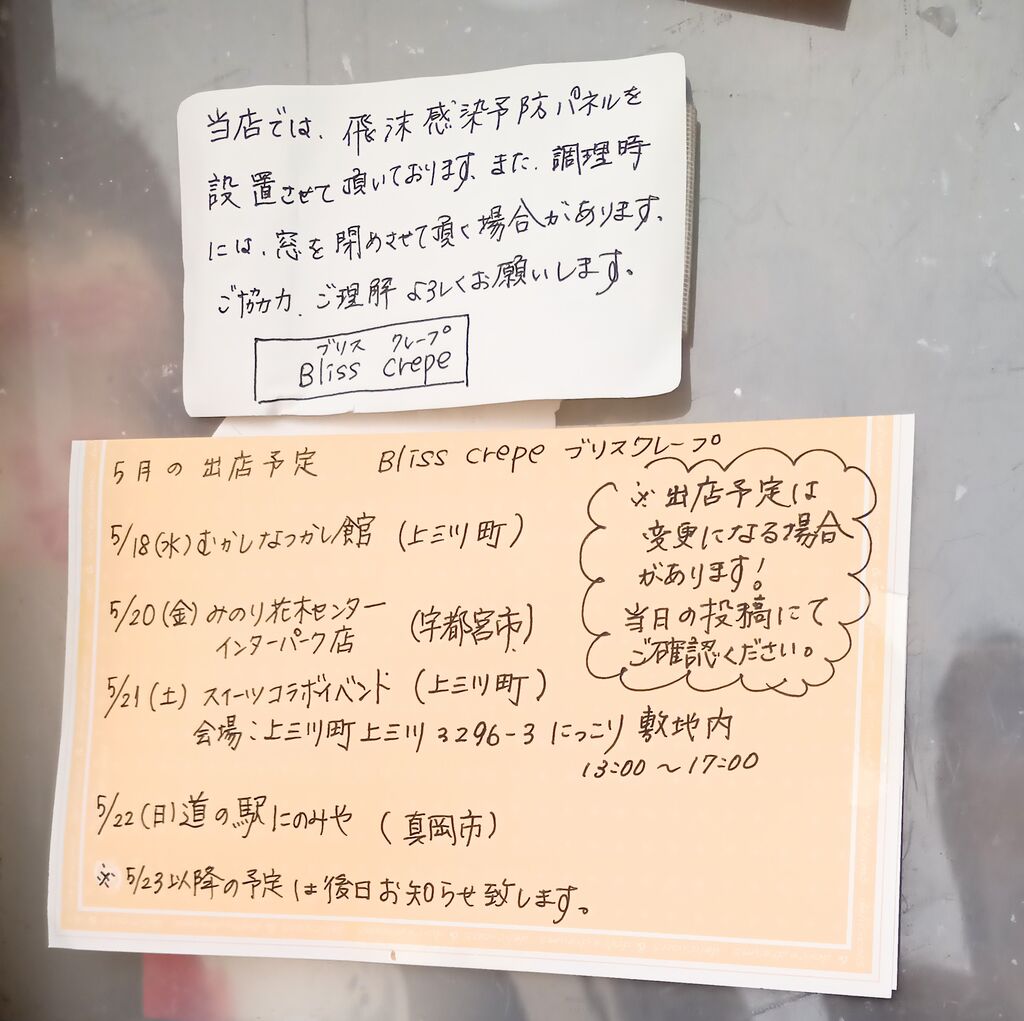 当店では、飛沫感染予防パネルを
設置させて頂いております。また、調理時
には、窓を閉めさせて頂く場合があります。
ご協力、ご理解よろしくお願いします。
ブリス クレープ
Bliss crepe
5月の出店予定 Bliss crepe ブリスクレープ
※出店予定は
変更になる場合
があります!
当日の投稿にて
ご確認ください。
5/18(水)むかしなつかし館(上三川町)
5/20(金)みのり花木センター
インターパーク店 (宇都宮市)
5/21(土) スイーツコラボイベンド(上三川町)
会場:上三川町上三川3296-3 にっこり敷地内
13:00〜17:00
5/22(日)道の駅にのみや (真岡市)
※5/23以降の予定は後日お知らせ致します。